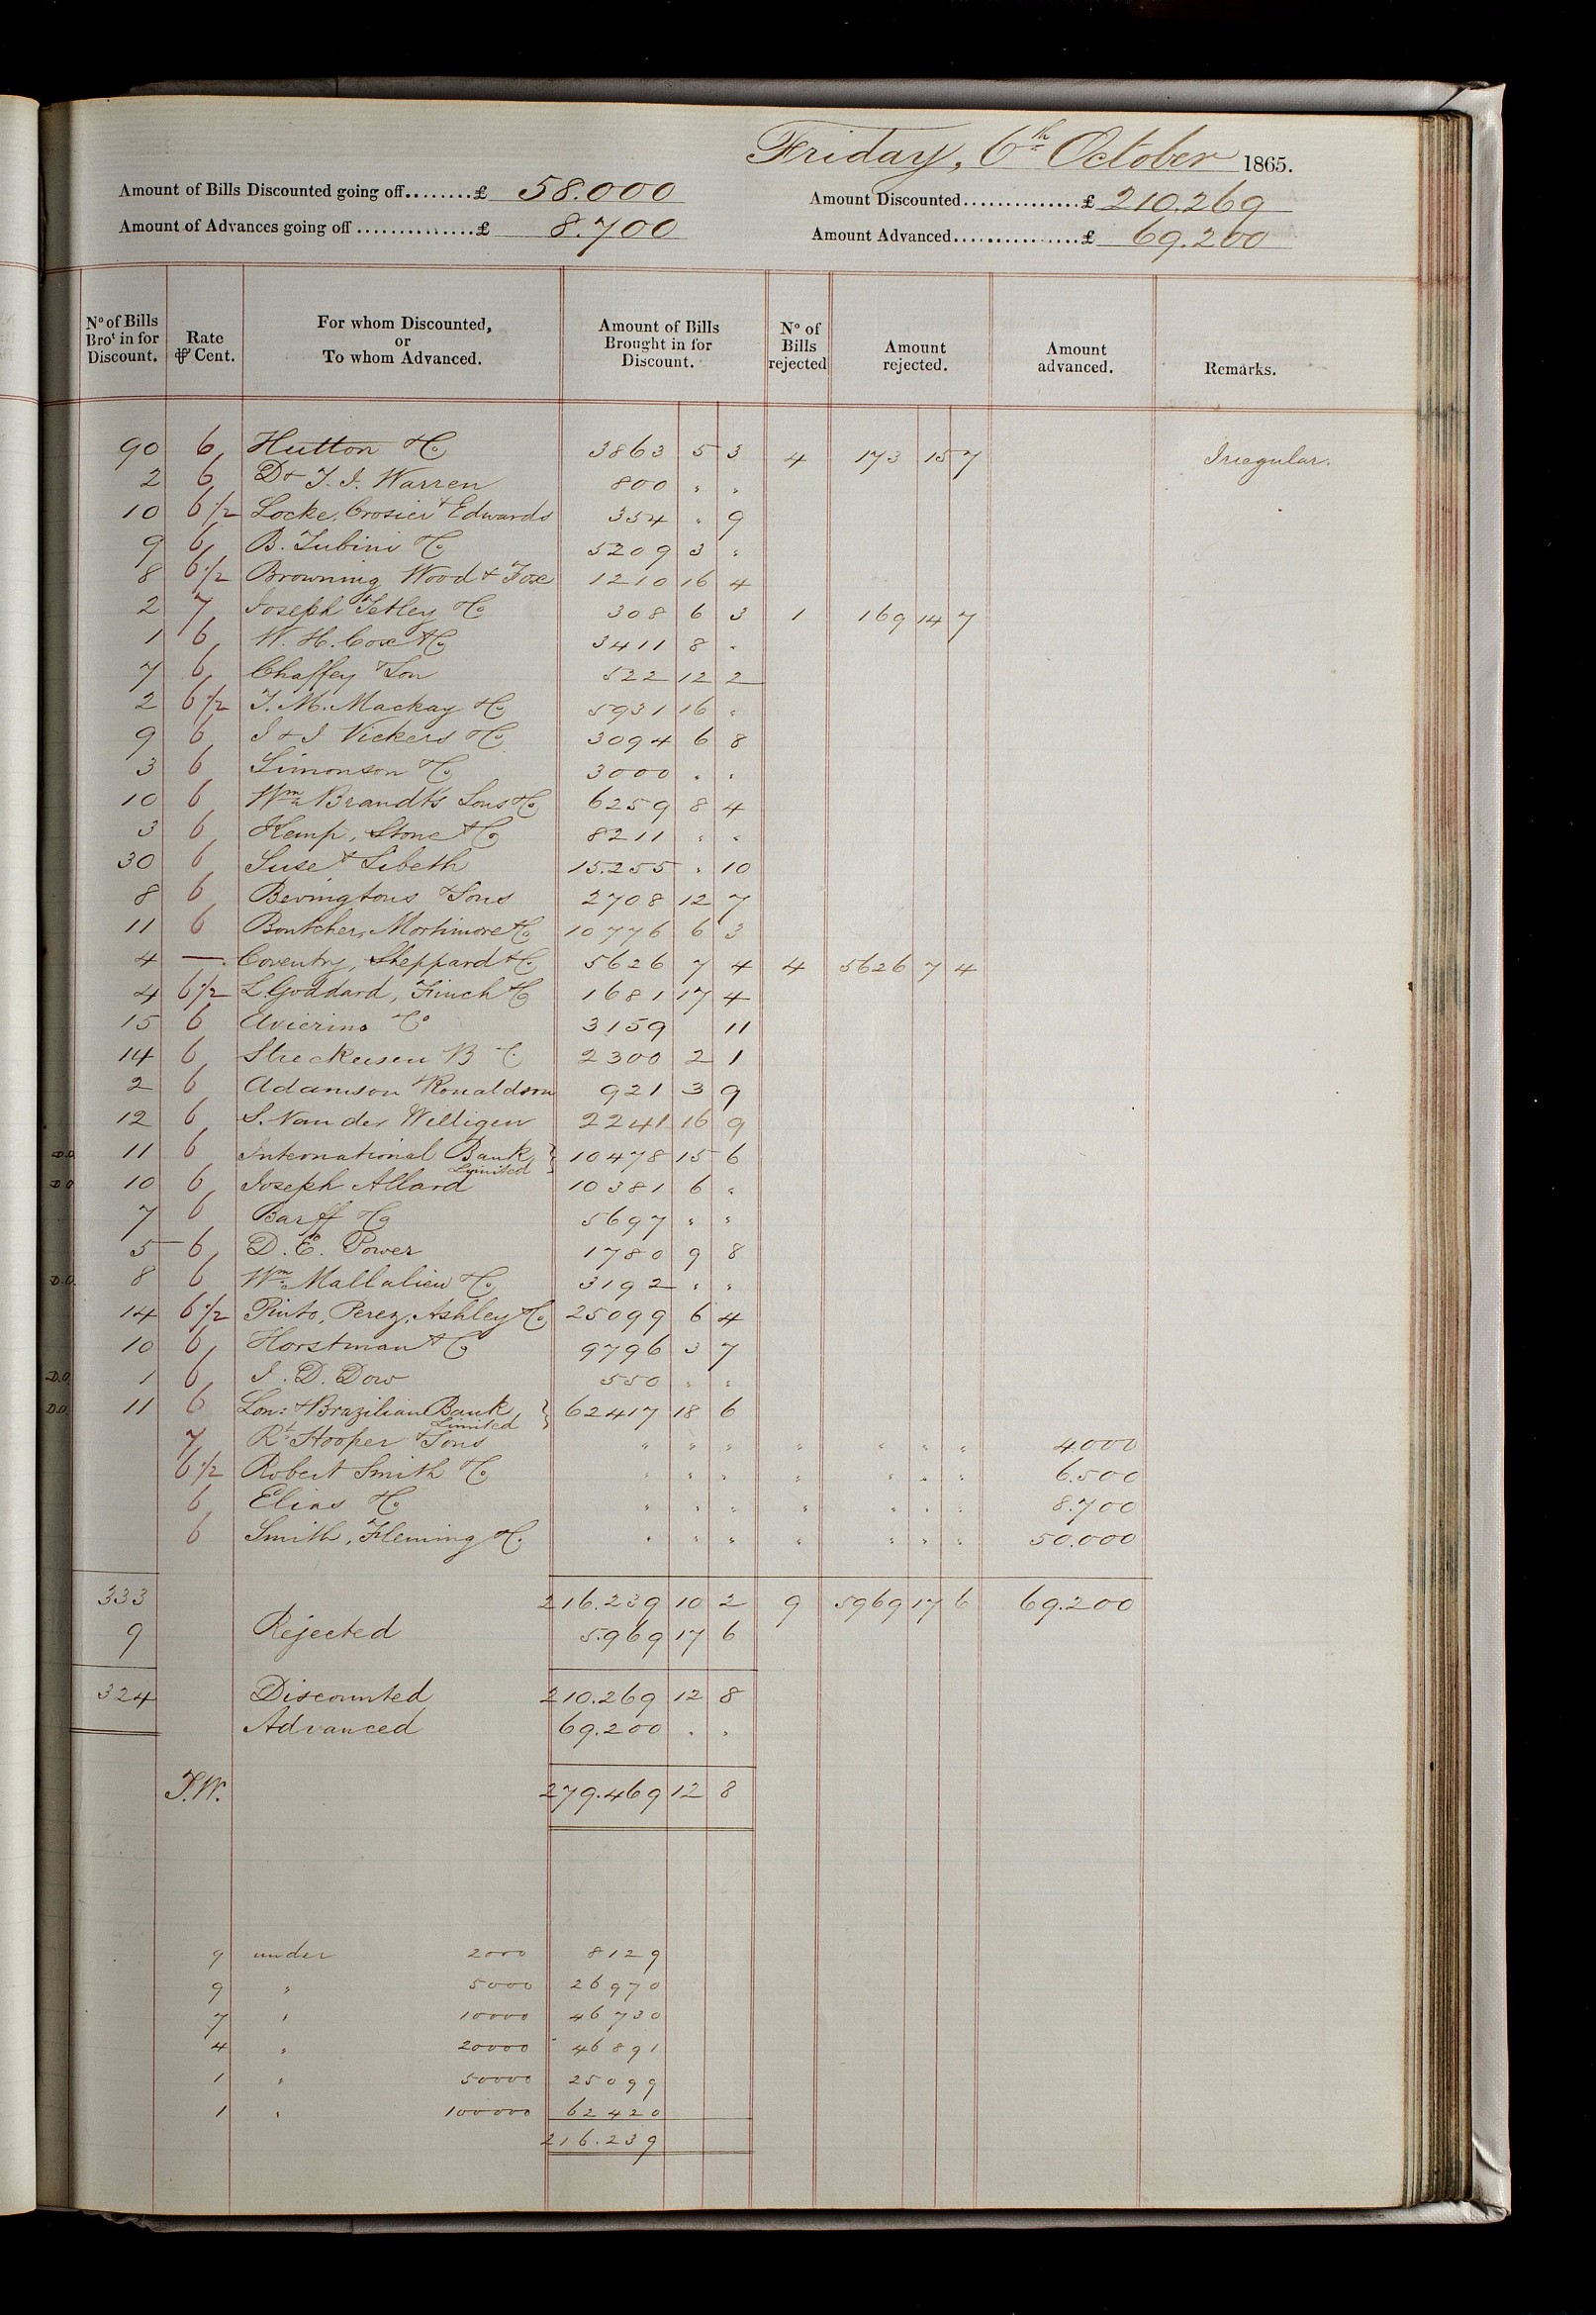 Friday, 6th October 1865.
Amount of Bills Discounted going off........£ 58.000
Amount Discounted..............£ 210.269
Amount of Advances going off..............£ 8.700
Amount Advanced..............£ 69.200
No of Bills Brot in for Discount. Rate ⅌ Cent. For whom Discounted, or To whom Advanced. Amount of Bills Brought in for Discount. No of Bills rejected Amount rejected. Amount advanced. Remarks.
90 6 Hutton & Co 3863 5 3 4 173 15 7 Irregular.
2 6 D & T. J. Warren 800 " "
10 6 1/2 Locke, Crosier & Edwards 354 " 9
9 6 B. Tubini & Co 5209 3 "
8 6 1/2 Browning Wood & Fox 1210 16 4
2 7 Joseph Tetley & Co 308 6 3 1 169 14 7
1 6 W. H. Cox & Co 3411 8 "
7 6 Chaffey & Son 522 12 2
2 6 1/2 T. M. Mackay & Co 5931 16 "
9 6 J & J Vickers & Co 3094 6 8
3 6 Simonson & Co 3000 " "
10 6 Wm Brandt's Sons & Co 6259 8 4
3 6 Kemp, Stone & Co 8211 " "
30 6 Suse & Sibeth 15.255 " 10
8 6 Bevingtons & Sons 2708 12 7
11 6 Boutcher, Mortimore & Co 10776 6 3
4 —. Coventry, Sheppard & Co 5626 7 4 4 5626 7 4
4 6 1/2 L. Goddard, Finch & Co 1681 17 4
15 6 Avierino & Co 3159 11
14 6 Streckeisen B & C 2300 2 1
2 6 Adamson & Ronaldson 921 3 9
12 6 S. Van der Willigen 2241 16 9
D.O. 11 6 International Bank } 10478 15 6
Limited
D.O. 10 6 Joseph Allard 10381 6 "
7 6 Barff & Co 5697 " "
5 6 D. E. Power 1780 9 8
D.O. 8 6 Wm Mallalieu & Co 3192 " "
14 6 1/2 Pinto, Perez, Ashley & Co 25099 6 4
10 6 Horstman & Co 9796 3 7
D.O. 1 6 J. D. Dow 550 " "
D.O. 11 6 Lon: & Brazilian Bank } 62417 18 6
Limited
7 Rt Hooper & Sons " " " " " " " 4000
6 1/2 Robert Smith & Co " " " " " " " 6.500
6 Elias & Co " " " " " " " 8.700
6 Smith, Fleming & Co " " " " " " " 50.000
333 216.239 10 2 9 5969 17 6 69.200
9 Rejected 5.969 17 6
324 Discounted 210.269 12 8
Advanced 69.200 " "
T.W. 279.469 12 8
9 under 2000 8129
9 " 5000 26970
7 " 10000 46730
4 " 20000 46891
1 " 50000 25099
1 " 100000 62420
216.239